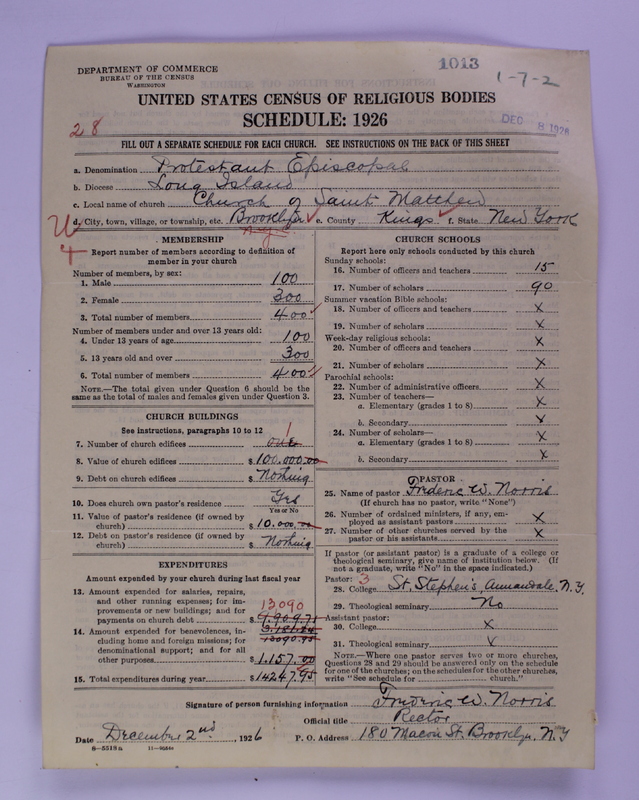 DEPARTMENT OF COMMERCE
BUREAU OF THE CENSUS
WASHINGTON
1013
1-7-2
UNITED STATES CENSUS OF RELIGIOUS BODIES
SCHEDULE: 1926
DEC 8 1926
28
FILL OUT A SEPARATE SCHEDULE FOR EACH CHURCH. SEE INSTRUCTIONS ON THE BACK OF THIS SHEET
a. Denomination Protestant Episcopal
b. Diocese Long Island
c. Local name of church Church of Saint Matthew
d. City, town, village, or township, etc. Brooklyn e. County Kings f. State New York
MEMBERSHIP
Report number of members according to definition of
member in your church
Number of members, by sex:
1. Male 100
2. Female 300
3. Total number of members 400
Number of members under and over 13 years old:
4. Under 13 years of age 100
5. 13 years old and over 300
6. Total number of members 400
NOTE.—The total given under Question 6 should be
the same as the total of males and females given under Question 3.
CHURCH BUILDINGS
See instructions, paragraphs 10 to 12
7. Number of church edifices one 1
8. Value of church edifices $ 100,000.00
9. Debt on church edifices $ Nothing
10. Does church own pastor's residence Yes
Yes or No
11. Value of pastor's residence (if owned by
church) $ 10.000.00
12. Debt on pastor's residence (if owned by
church) $ Nothing
EXPENDITURES
Amount expended by your church during last fiscal year
13. Amount expended for salaries, repairs,
and other running expenses; for im-
provements or new buildings; and for
payments on church debt $ 9.909.71
13090
14. Amount expended for benevolences, in-
cluding home and foreign missions; for
denominational support; and for all
other purposes $ 1.157.00
13090.95
15. Total expenditures during year $ 14247.95
CHURCH SCHOOLS
Report here only schools conducted by this church
Sunday schools:
16. Number of officers and teachers 15
17. Number of scholars 90
Summer vacation Bible schools:
18. Number of officers and teachers X
19. Number of scholars X
Week-day religious schools: X
20. Number of officers and teachers
21. Number of scholars X
Parochial schools:
22. Number of administrative officers X
23. Number of teachers—
a. Elementary (grades 1 to 8) X
b. Secondary X
24. Number of scholars—
a. Elementary (grades 1 to 8) X
b. Secondary X
PASTOR
25. Name of pastor Frederic W. Norris
(If church has no pastor, write "None")
26. Number of ordained ministers, if any, em-
ployed as assistant pastors X
27. Number of other churches served by the
pastor or his assistants X
If pastor (or assistant pastor) is a graduate of a college or
theological seminary, give name of institution below. (If
not a graduate, write "No" in the space indicated.)
Pastor: 3
28. College St. Stephen's, Annandale, N.Y.
29. Theological seminary No
Assistant pastor:
30. College X
31. Theological seminary X
NOTE.—Where one pastor serves two or more churches,
Questions 28 and 29 should be answered only on the schedule
for one of the churches; on the schedules for the other churches,
write "See schedule for church."
Signature of person furnishing information Frederic W. Norris
Official title Rector
Date December 2nd, 1926 P. O. Address 180 Macon St. Brooklyn. N.Y
8-5518a 11-9584